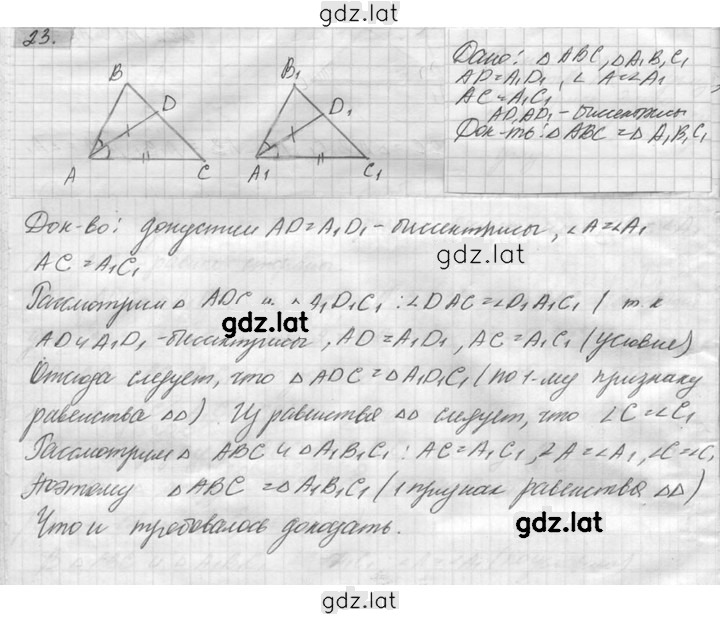 gdz.lat
23.
B
D
A
C
B₁
D₁
A₁
C₁
Дано: △ ABC, △ A₁B₁C₁
AD=A₁D₁, ∠A=∠A₁
AC=A₁C₁
AD, AD₁ - биссектрисы
Док-ть: △ABC=△A₁B₁C₁
gdz.lat
Док-во: допустим AD=A₁D₁-биссектрисы, ∠A=∠A₁
AC=A₁C₁
gdz.lat
Рассмотрим △ ADC и △ A₁D₁C₁: ∠DAC=∠D₁A₁C₁ (т.к
gdz.lat
AD и A₁D₁-биссектрисы, AD=A₁D₁, AC=A₁C₁ (условие)
Отсюда следует, что △ADC=△A₁D₁C₁ (по 1-му признаку
равенства △△) Из равенства △△ следует, что ∠C=∠C₁
Рассмотрим △ ABC и △A₁B₁C₁: AC=A₁C₁, ∠A=∠A₁, ∠C=∠C₁
Поэтому △ABC=△A₁B₁C₁ (1 признак равенства △△)
Что и требовалось доказать.
gdz.lat
gdz.lat